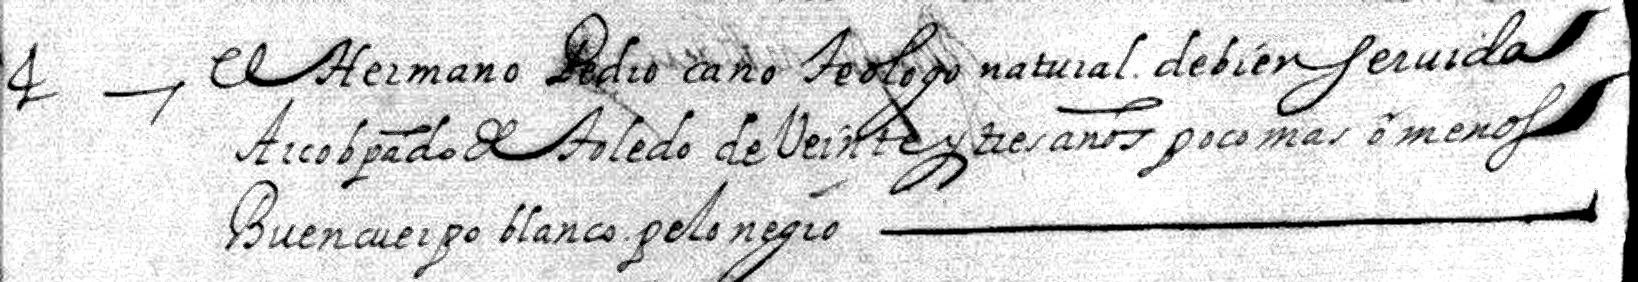 4 — El Hermano Pedro cano teologo natural. de bien seruida
Arcobpādo de toledo de Veinte y tres años poco mas ō menos
Buen cuerpo blanco. pelo negro